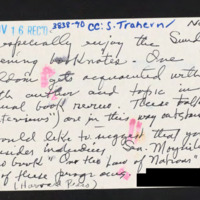 NOV 16 REC'D 3838-90 CC: S. Trahern/ No
especially enjoy the Sund
ening booknotes. One
get acquainted with
th author and topic in
ual book review. These
interviews") are in this way
ould like to suggest that you
nsider including Sen. Moynih
book "On the Law of Nations"
of these programs.
(Harvard Press)